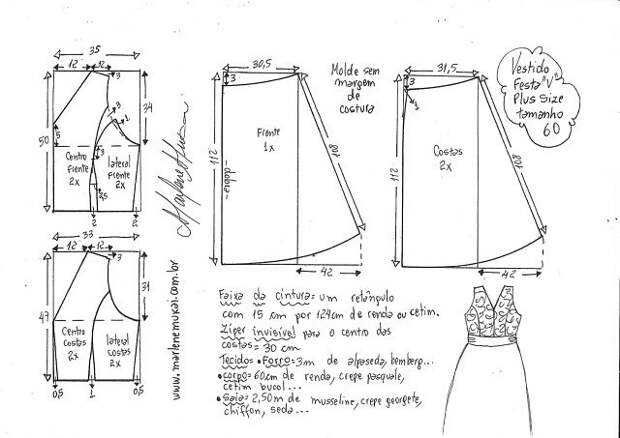 35
12
12
3
3
1
34
50
5
3
Centro
frente
2x
lateral
frente
2x
2,5
2
33
12
12
3
31
47
Centro
costas
2x
lateral
costas
2x
0,5
1
0,5
Marlene Mukai
www.marlenemukai.com.br
30,5
3
Frente
1x
dobra
112
108
42
Molde sem
margem
de
costura
31,5
3
1
Costas
2x
112
108
42
Vestido
Festa "V"
Plus Size
tamanho
60
Faixa da cintura: um retângulo
com 15 cm por 124cm de renda ou cetim.
Zíper invisível para o centro das
costas = 30 cm
Tecido: • Forro = 3m de alpaseda, bemberg...
• corpo = 60cm de renda, crepe pasquale,
cetim bucol...
• saia = 2,50m de musseline, crepe georgete,
chiffon, seda...